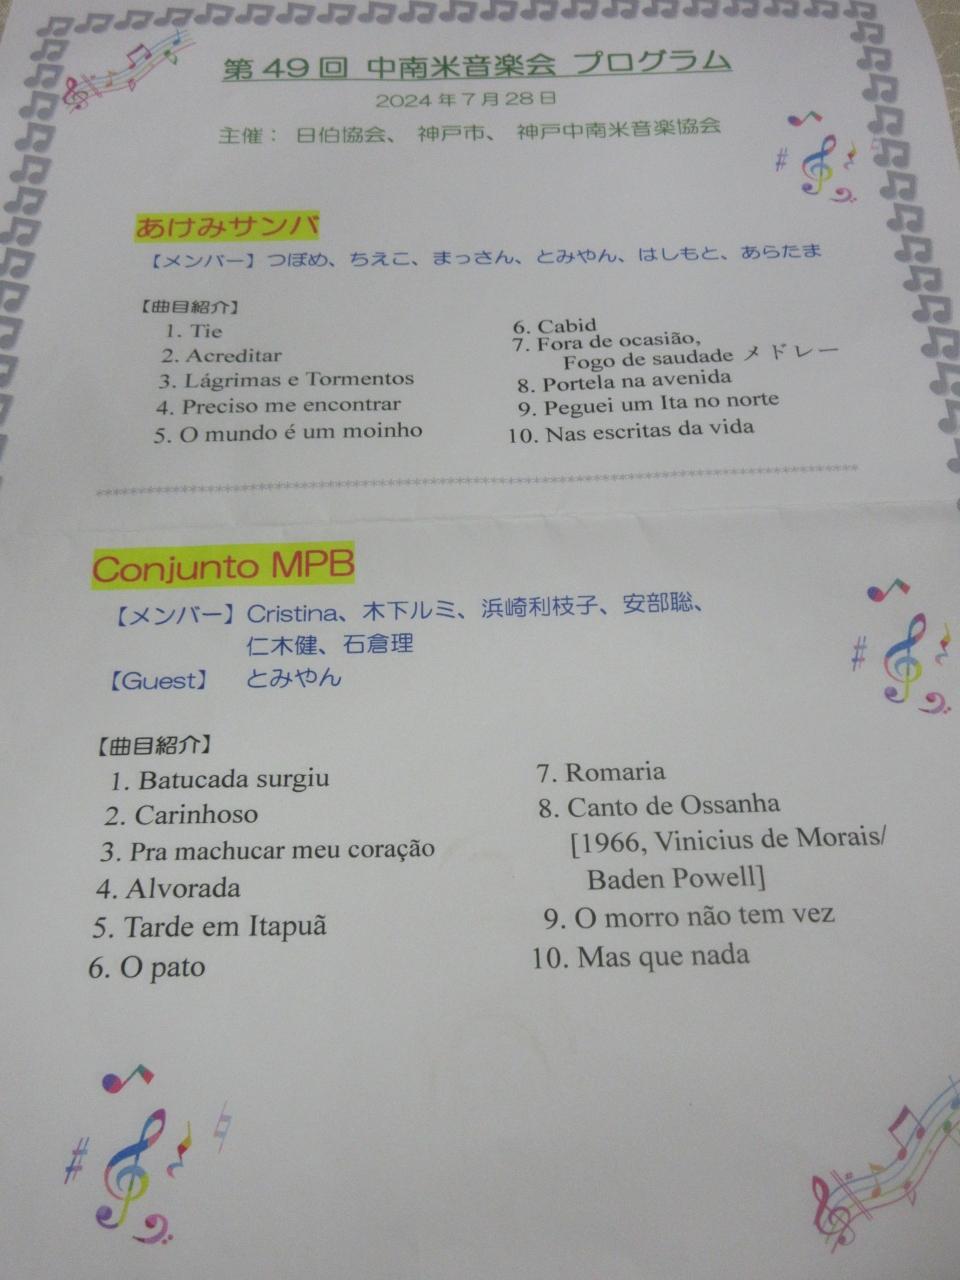 第49回 中南米音楽会 プログラム
2024年7月28日
主催： 日伯協会、 神戸市、 神戸中南米音楽協会
あけみサンバ
【メンバー】つぼめ、ちえこ、まっさん、とみやん、はしもと、あらたま
【曲目紹介】
1. Tie
2. Acreditar
3. Lágrimas e Tormentos
4. Preciso me encontrar
5. O mundo é um moinho
6. Cabid
7. Fora de ocasião,
Fogo de saudade メドレー
8. Portela na avenida
9. Peguei um Ita no norte
10. Nas escritas da vida
Conjunto MPB
【メンバー】Cristina、木下ルミ、浜崎利枝子、安部聡、
仁木健、石倉理
【Guest】 とみやん
【曲目紹介】
1. Batucada surgiu
2. Carinhoso
3. Pra machucar meu coração
4. Alvorada
5. Tarde em Itapuã
6. O pato
7. Romaria
8. Canto de Ossanha
[1966, Vinicius de Morais/
Baden Powell]
9. O morro não tem vez
10. Mas que nada